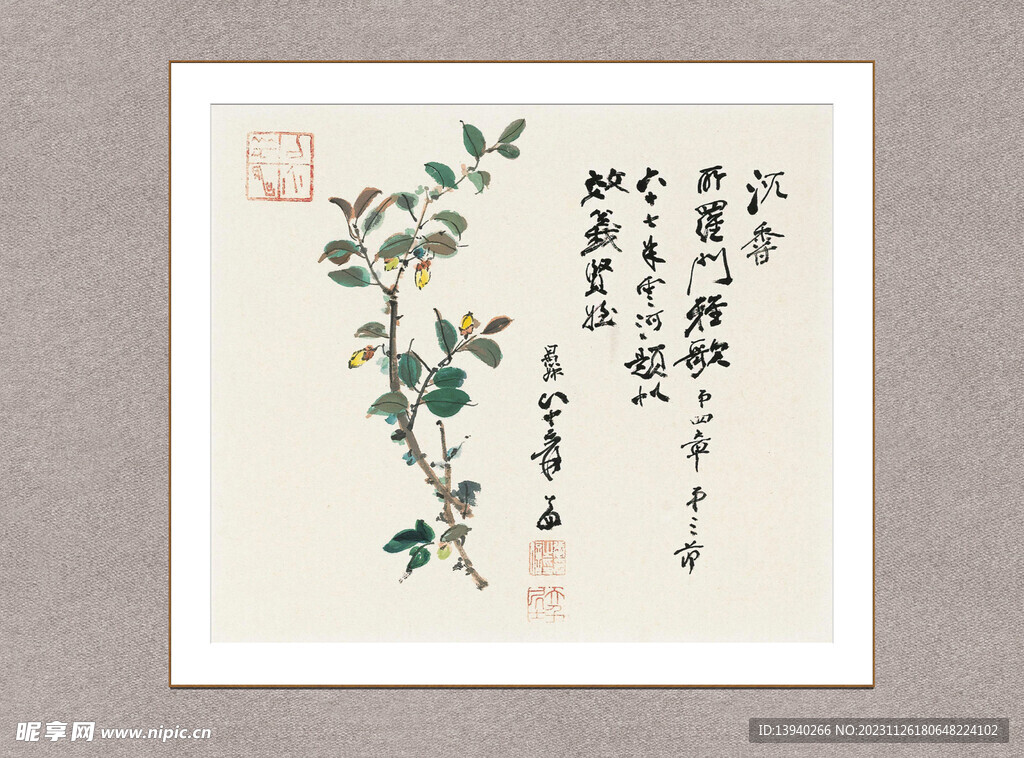 沉香
所羅門雅歌 第四章 第三節
六十七年雲河題
效義賢姪
八十叟爰
昵享网 www.nipic.cn
ID:13940266 NO:20231126180648224102